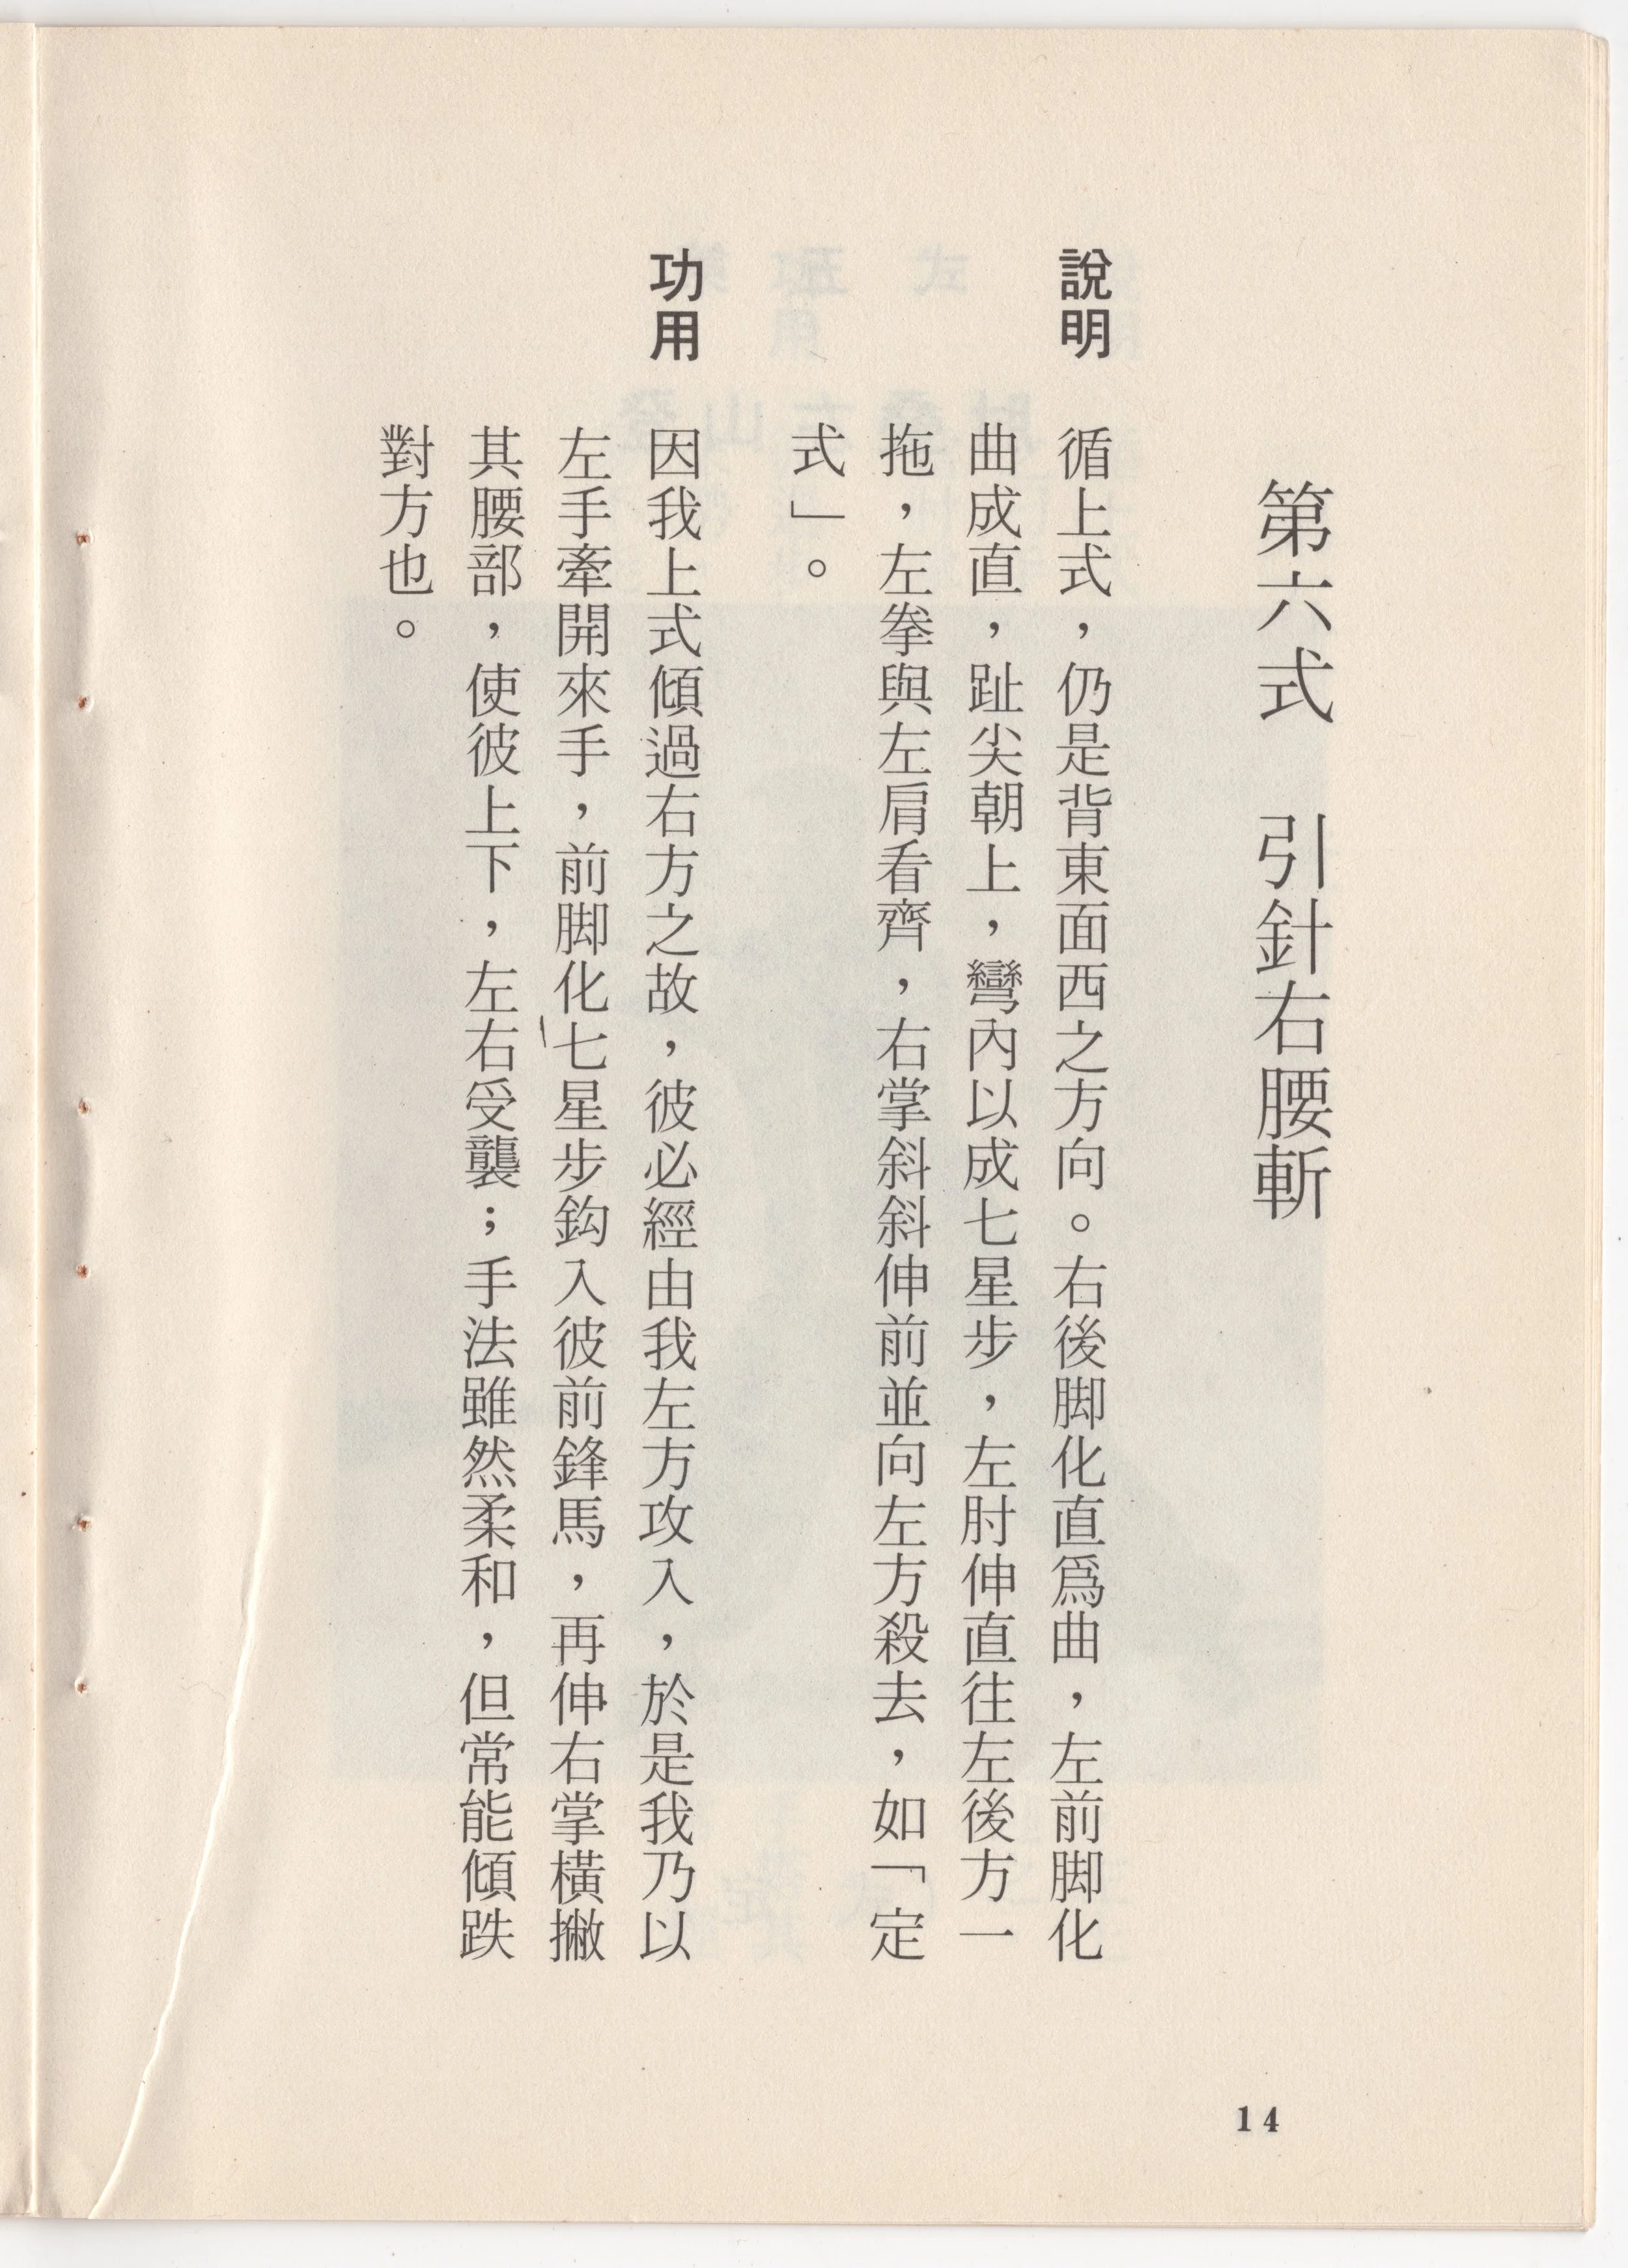 第六式　引針右腰斬
說明　循上式，仍是背東面西之方向。右後脚化直爲曲，左前脚化
曲成直，趾尖朝上，彎內以成七星步，左肘伸直往左後方一
拖，左拳與左肩看齊，右掌斜斜伸前並向左方殺去，如「定
式」。
功用　因我上式傾過右方之故，彼必經由我左方攻入，於是我乃以
左手牽開來手，前脚化七星步鈎入彼前鋒馬，再伸右掌橫撇
其腰部，使彼上下，左右受襲；手法雖然柔和，但常能傾跌
對方也。
14